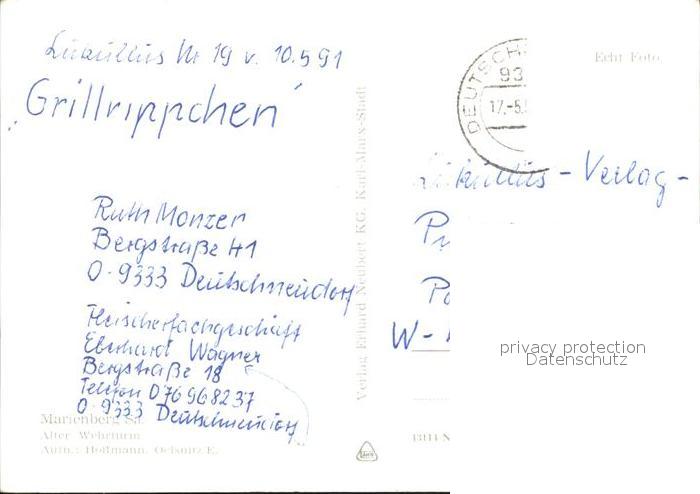 Lukullus Nr 19 v. 10.5 91
„Grillrippchen"
Ruth Monzer
Bergstraße 41
O-9333 Deutschneudorf
Fleischerfachgeschäft
Eberhard Wagner
Bergstraße 18
Telefon 076968237
O-9333 Deutschneudorf
Marienberg Sa.
Alter Wehrturm
Aufn.: Hoffmann, Oelsnitz E.
Verlag Erhard Neubert KG, Karl-Marx-Stadt
Echt Foto
DEUTSCHN
93
17.-5.
Lukullus-Verlag-
W-
privacy protection
Datenschutz